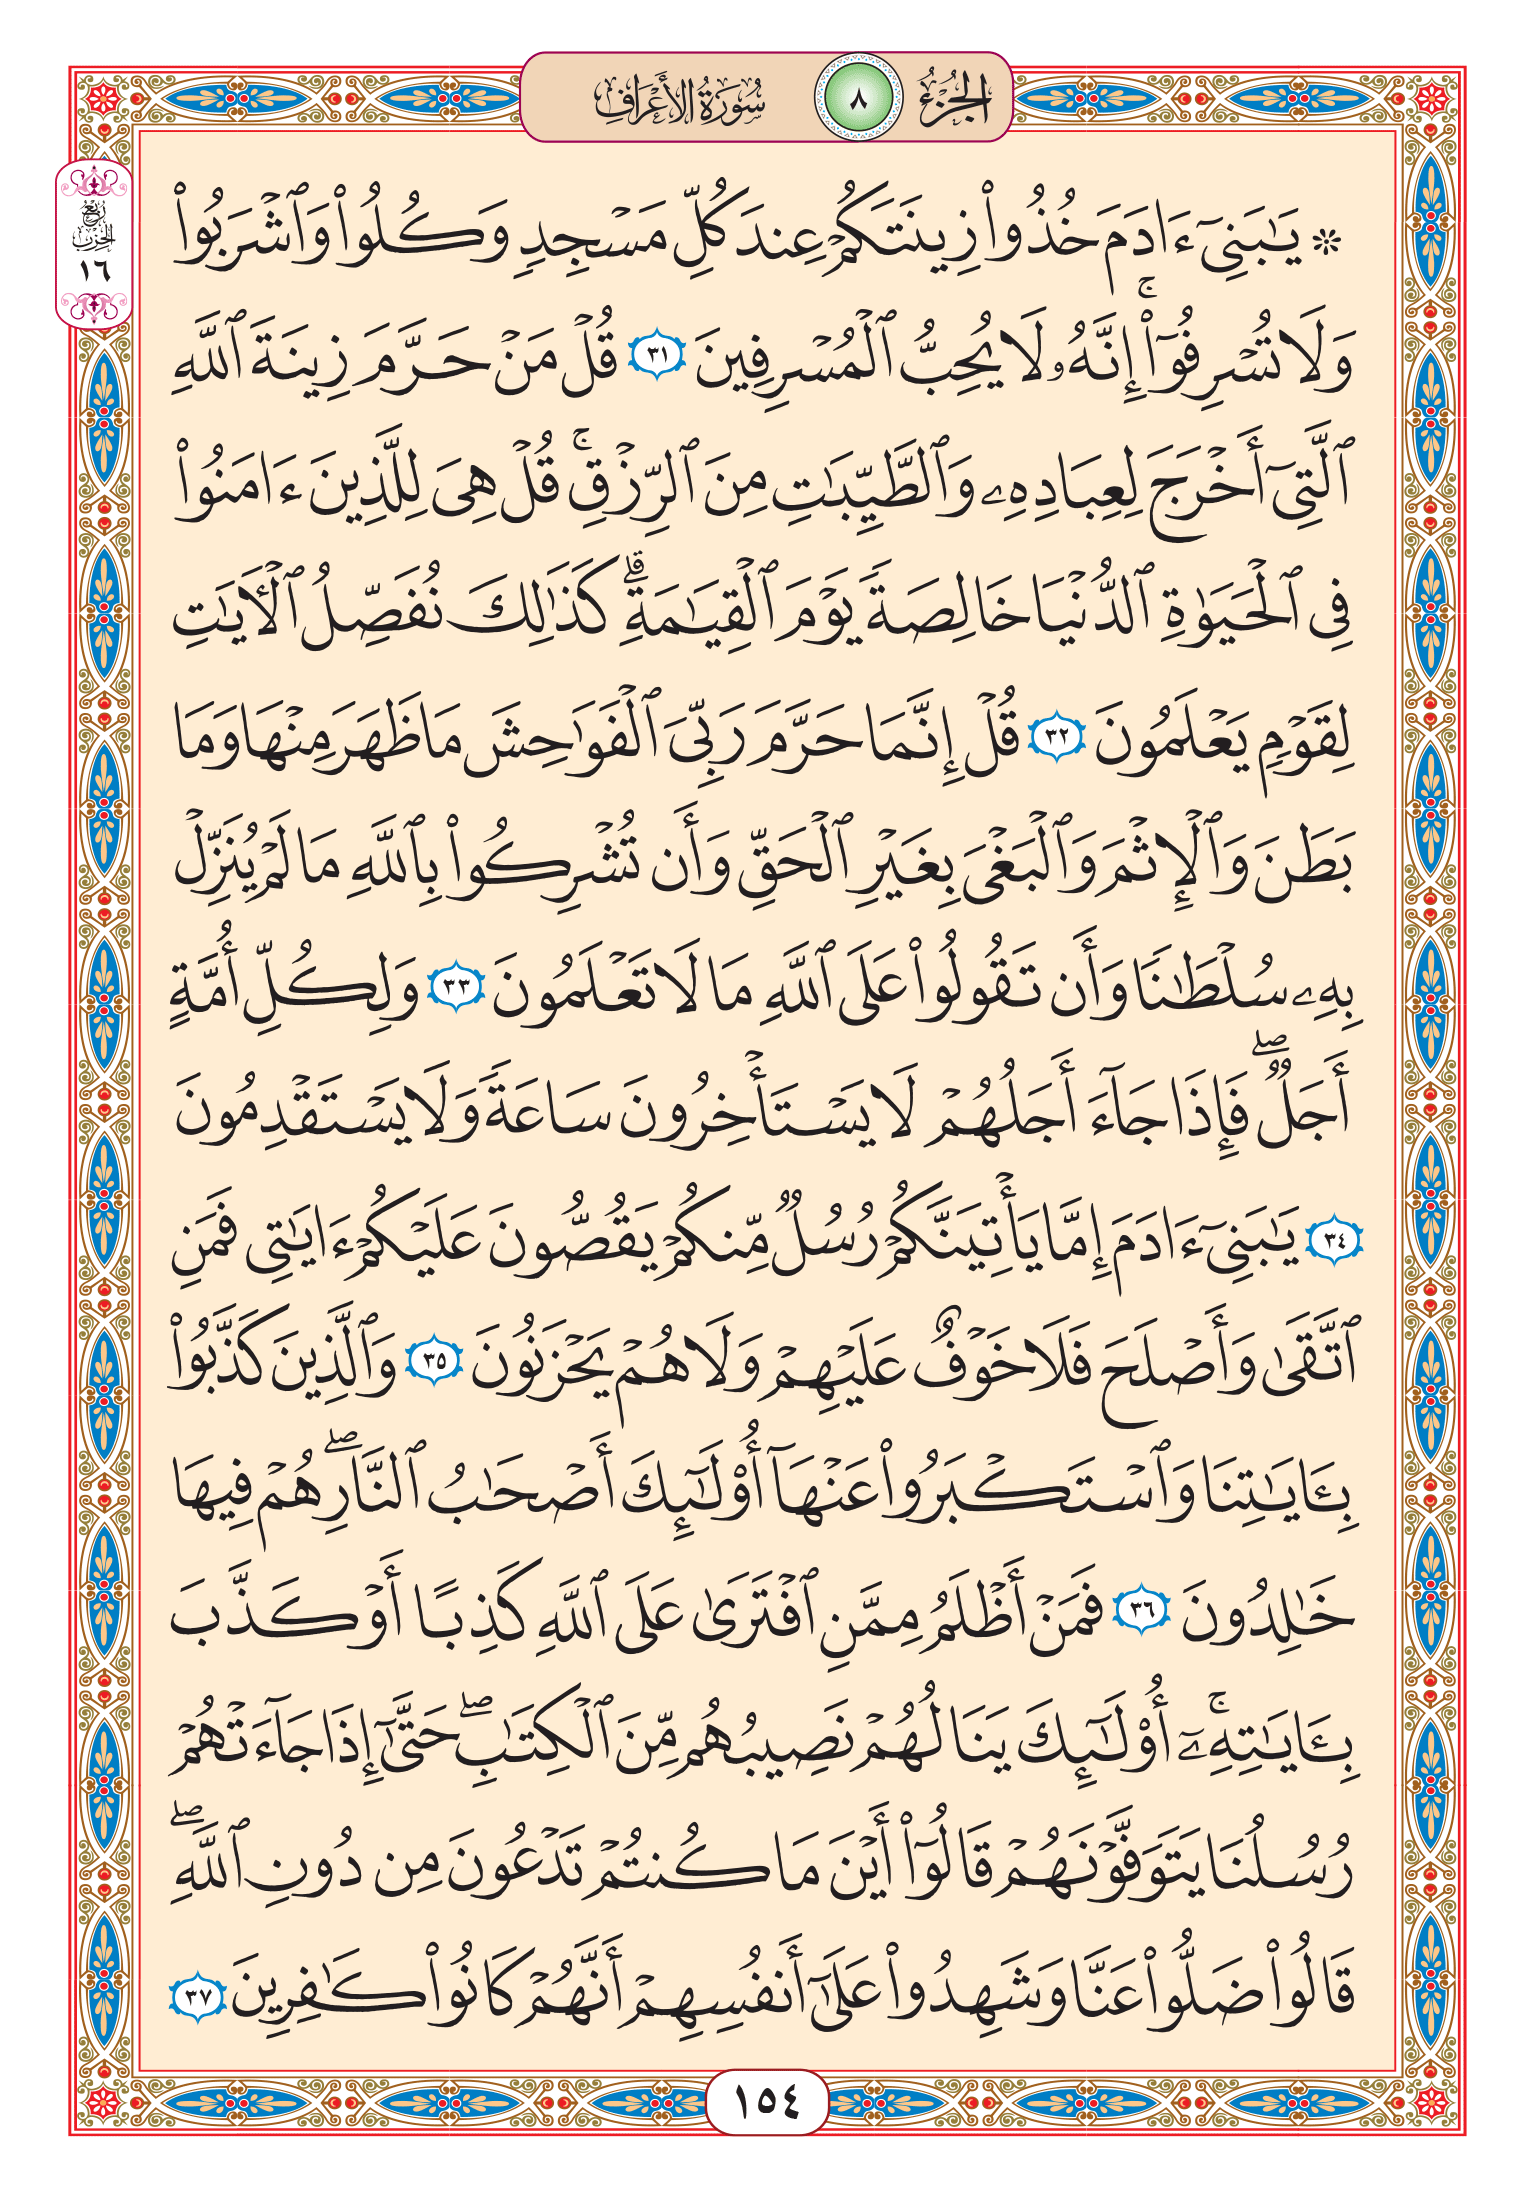 الجزء ٨ سورة الأعراف
ربع
الحزب
١٦
۞ يَـٰبَنِىٓ ءَادَمَ خُذُوا۟ زِينَتَكُمْ عِندَ كُلِّ مَسْجِدٍ وَكُلُوا۟ وَٱشْرَبُوا۟
وَلَا تُسْرِفُوٓا۟ ۚ إِنَّهُۥ لَا يُحِبُّ ٱلْمُسْرِفِينَ ٣١ قُلْ مَنْ حَرَّمَ زِينَةَ ٱللَّهِ
ٱلَّتِىٓ أَخْرَجَ لِعِبَادِهِۦ وَٱلطَّيِّبَـٰتِ مِنَ ٱلرِّزْقِ ۚ قُلْ هِىَ لِلَّذِينَ ءَامَنُوا۟
فِى ٱلْحَيَوٰةِ ٱلدُّنْيَا خَالِصَةً يَوْمَ ٱلْقِيَـٰمَةِ ۗ كَذَٰلِكَ نُفَصِّلُ ٱلْـَٔايَـٰتِ
لِقَوْمٍ يَعْلَمُونَ ٣٢ قُلْ إِنَّمَا حَرَّمَ رَبِّىَ ٱلْفَوَٰحِشَ مَا ظَهَرَ مِنْهَا وَمَا
بَطَنَ وَٱلْإِثْمَ وَٱلْبَغْىَ بِغَيْرِ ٱلْحَقِّ وَأَن تُشْرِكُوا۟ بِٱللَّهِ مَا لَمْ يُنَزِّلْ
بِهِۦ سُلْطَـٰنًا وَأَن تَقُولُوا۟ عَلَى ٱللَّهِ مَا لَا تَعْلَمُونَ ٣٣ وَلِكُلِّ أُمَّةٍ
أَجَلٌ ۖ فَإِذَا جَآءَ أَجَلُهُمْ لَا يَسْتَأْخِرُونَ سَاعَةً وَلَا يَسْتَقْدِمُونَ
٣٤ يَـٰبَنِىٓ ءَادَمَ إِمَّا يَأْتِيَنَّكُمْ رُسُلٌ مِّنكُمْ يَقُصُّونَ عَلَيْكُمْ ءَايَـٰتِى فَمَنِ
ٱتَّقَىٰ وَأَصْلَحَ فَلَا خَوْفٌ عَلَيْهِمْ وَلَا هُمْ يَحْزَنُونَ ٣٥ وَٱلَّذِينَ كَذَّبُوا۟
بِـَٔايَـٰتِنَا وَٱسْتَكْبَرُوا۟ عَنْهَآ أُو۟لَـٰٓئِكَ أَصْحَـٰبُ ٱلنَّارِ ۖ هُمْ فِيهَا
خَـٰلِدُونَ ٣٦ فَمَنْ أَظْلَمُ مِمَّنِ ٱفْتَرَىٰ عَلَى ٱللَّهِ كَذِبًا أَوْ كَذَّبَ
بِـَٔايَـٰتِهِۦٓ ۚ أُو۟لَـٰٓئِكَ يَنَالُهُمْ نَصِيبُهُم مِّنَ ٱلْكِتَـٰبِ ۖ حَتَّىٰٓ إِذَا جَآءَتْهُمْ
رُسُلُنَا يَتَوَفَّوْنَهُمْ قَالُوٓا۟ أَيْنَ مَا كُنتُمْ تَدْعُونَ مِن دُونِ ٱللَّهِ ۖ
قَالُوا۟ ضَلُّوا۟ عَنَّا وَشَهِدُوا۟ عَلَىٰٓ أَنفُسِهِمْ أَنَّهُمْ كَانُوا۟ كَـٰفِرِينَ ٣٧
١٥٤